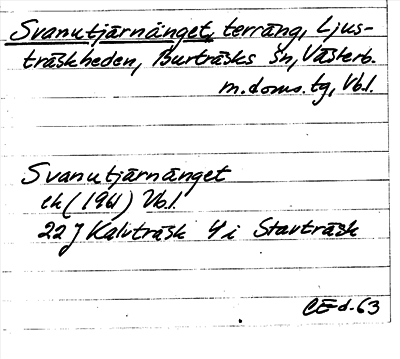 Svanutjärnänget, terräng, Ljus-
träskheden, Burträsks sn, Västerb.
m. doms. tg, Vb.l.
Svanutjärnänget
ek (1961) Vb.l.
22 J Kalvträsk 4 i Stavträsk
CE d. 63